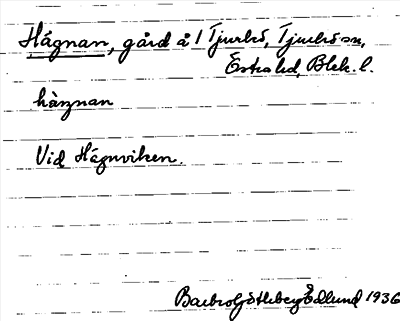 Hägnan, gård å 1 Tjurkö, Tjurkö sn,
Östra hd, Blek. l.
hàŋnan
Vid Hägnviken.
Barbro Götleberg Edlund 1936